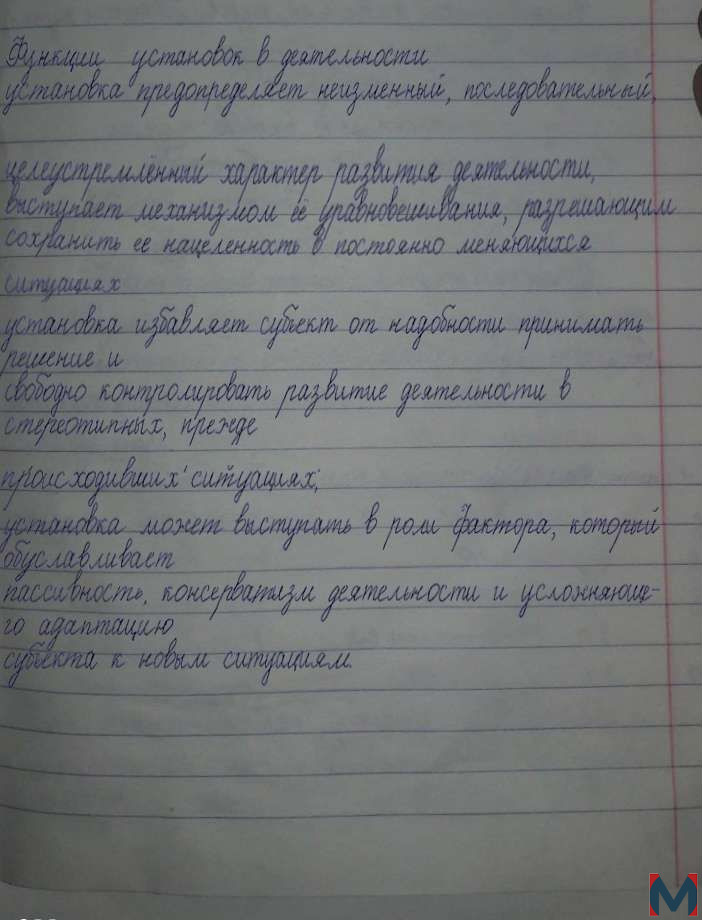 Функции установок в деятельности
установка предопределяет неизменный, последовательный,
целеустремлённый характер развития деятельности,
выступает механизмом её уравновешивания, разрешающим
сохранить ее нацеленность в постоянно меняющихся
ситуациях
установка избавляет субъект от надобности принимать
решение и
свободно контролировать развитие деятельности в
стереотипных, прежде
происходивших ситуациях;
установка может выступать в роли фактора, который
обуславливает
пассивность, консерватизм деятельности и усложняюще-
го адаптацию
субъекта к новым ситуациям.
M